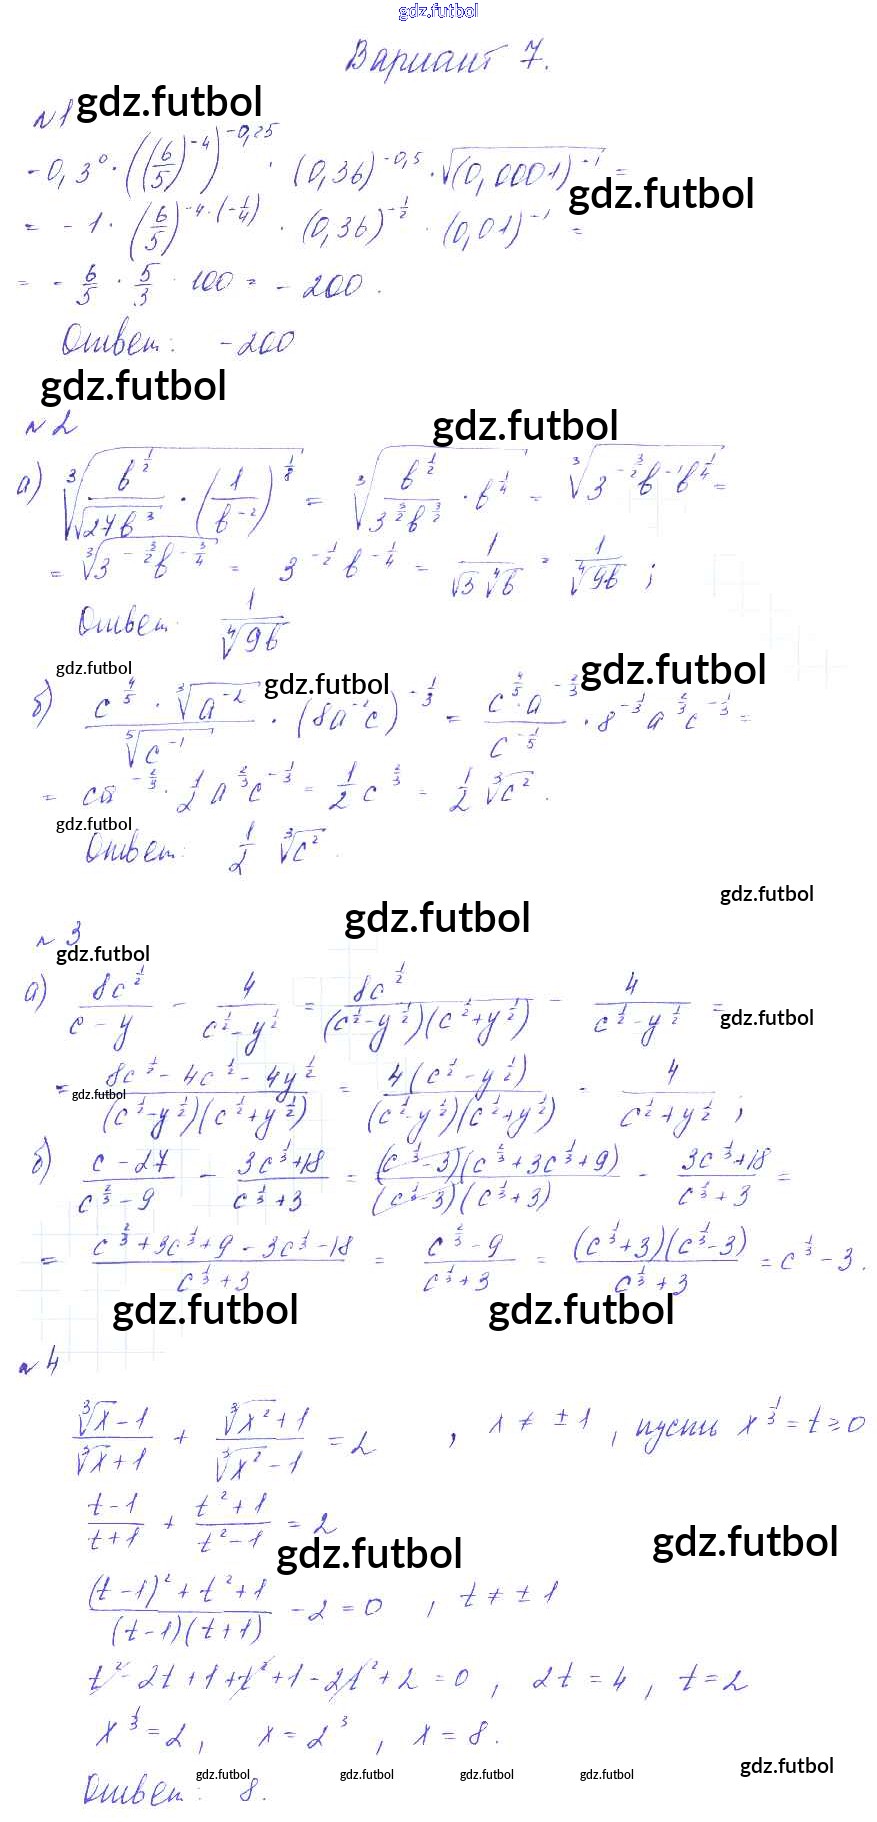 gdz.futbol
Вариант 7.
№1 gdz.futbol
-0,3⁰ · ((6/5)^-4)^-0,25 · (0,36)^-0,5 · √((0,0001)^-1) =
gdz.futbol
= -1 · (6/5)^-4·(-1/4) · (0,36)^-1/2 · (0,01)^-1 =
= - 6/5 · 5/3 · 100 = -200.
Ответ: -200
gdz.futbol
№2 gdz.futbol
а) ∛(b^1/2 / √(27b^3) · (1/b^-2)^1/8) = ∛(b^1/2 / (3^3/2 b^3/2) · b^1/4) = ∛(3^-3/2 b^-1 b^1/4) =
= ∛(3^-3/2 b^-3/4) = 3^-1/2 b^-1/4 = 1/(√3 ∜b) = 1/∜(9b) ;
Ответ: 1/∜(9b)
gdz.futbol gdz.futbol gdz.futbol
б) (c^4/5 · ∛(a^-2)) / ⁵√(c^-1) · (8a^-1c)^-1/3 = (c^4/5 · a^-2/3) / c^-1/5 · 8^-1/3 a^2/3 c^-1/3 =
= ca^-2/3 · 1/2 a^2/3 c^-1/3 = 1/2 c^2/3 = 1/2 ∛(c^2).
gdz.futbol
Ответ: 1/2 ∛(c^2).
gdz.futbol
gdz.futbol
№3
gdz.futbol
а) 8c^1/2 / (c - y) - 4 / (c^1/2 - y^1/2) = 8c^1/2 / ((c^1/2 - y^1/2)(c^1/2 + y^1/2)) - 4 / (c^1/2 - y^1/2) =
gdz.futbol
= (8c^1/2 - 4c^1/2 - 4y^1/2) / ((c^1/2 - y^1/2)(c^1/2 + y^1/2)) = 4(c^1/2 - y^1/2) / ((c^1/2 - y^1/2)(c^1/2 + y^1/2)) = 4 / (c^1/2 + y^1/2) ;
gdz.futbol
б) (c - 27) / (c^2/3 - 9) - (3c^1/3 + 18) / (c^1/3 + 3) = (c^1/3 - 3)(c^2/3 + 3c^1/3 + 9) / ((c^1/3 - 3)(c^1/3 + 3)) - (3c^1/3 + 18) / (c^1/3 + 3) =
= (c^2/3 + 3c^1/3 + 9 - 3c^1/3 - 18) / (c^1/3 + 3) = (c^2/3 - 9) / (c^1/3 + 3) = (c^1/3 + 3)(c^1/3 - 3) / (c^1/3 + 3) = c^1/3 - 3.
gdz.futbol gdz.futbol
№4
(∛x - 1)/(∛x + 1) + (∛(x^2) + 1)/(∛(x^2) - 1) = 2 , x ≠ ±1 , пусть x^1/3 = t ≥ 0
(t - 1)/(t + 1) + (t^2 + 1)/(t^2 - 1) = 2
gdz.futbol gdz.futbol
((t - 1)^2 + t^2 + 1) / ((t - 1)(t + 1)) - 2 = 0 , t ≠ ±1
t^2 - 2t + 1 + t^2 + 1 - 2t^2 + 2 = 0 , 2t = 4 , t = 2
x^1/3 = 2 , x = 2^3 , x = 8.
gdz.futbol gdz.futbol gdz.futbol gdz.futbol gdz.futbol
Ответ: 8.